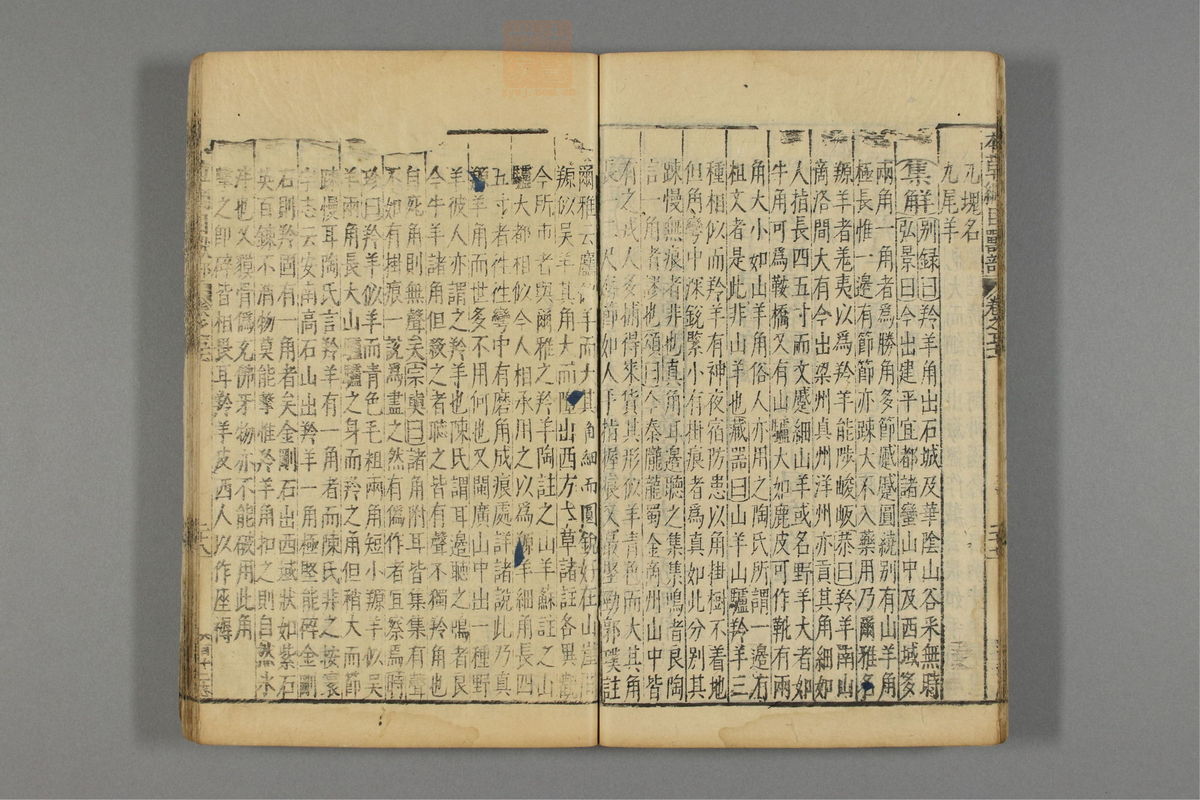 本草綱目獸部 卷之五十一
九塊名
九尾羊
集解 別録曰羚羊角出石城及華陰山谷采無時
弘景曰今出建平宜都諸蠻山中及西域多
兩角一角者為勝角多節蹙蹙圓繞别有山羊角
極長惟一邊有節節亦踈大不入藥用乃爾雅名
羱羊者羌夷以為羚羊能陟峻岅恭曰羚羊南山
商洛間大有今出梁州真州洋州亦貢其角細如
人指長四五寸而文蹙細山羊或名野羊大者如
牛角可為鞍橋又有山驢大如鹿皮可作靴有兩
角大小如山羊角俗人亦用之陶氏所謂一邊有
祖文者是此非山羊也藏器曰山羊山驢羚羊三
種相似而羚羊有神夜宿防患以角掛樹不着地
但角彎中深鋭緊小有掛痕者為真如此分别其
踈慢無痕者非也真角耳邊聽之集集鳴者良陶
言一角者謬也頌曰今秦隴龍蜀金商州山中皆
有之戎人多捕得來貨其形似羊青色而大其角
長一二尺有節如人手指握痕又最堅勁郭璞註
爾雅云麢似羊而大其角細而圓銳好在山崖間
羱似吳羊其角大而隋出西方本草諸註各異觀
今所市者與爾雅之羚羊陶註之山羊蘇註之山
驢大都相似今人相承用之以為羱羊細角長四
五寸者往往彎中有磨角成痕處詳諸說此乃真
羚羊角而世多不用何也又閩廣山中出一種野
羊彼人亦謂之羚羊也陳氏謂耳邊聽之鳴者良
今牛羊諸角但殺之者聽之皆有聲不獨羚角也
自死角則無聲矣宗奭曰諸角附耳皆集集有聲
不如有掛痕一說為盡之然有僞作者宜察焉時
珍曰羚羊似羊而青色毛粗兩角短小羱羊似吳
羊兩角長大山驢驢之身而羚之角但稍大而節
踈慢耳陶氏言羚羊有一角者而陳氏非之按寰
宇志云安南高石山出羚羊一角極堅能碎金剛
石則羚固有一角者矣金剛石出西域狀如紫石
英百鍊不消物莫能擊惟羚羊角扣之則自然氷
泮也又貘骨僞充佛牙物亦不能破用此角
擊之即碎皆相畏耳羚羊皮西人以作座褥